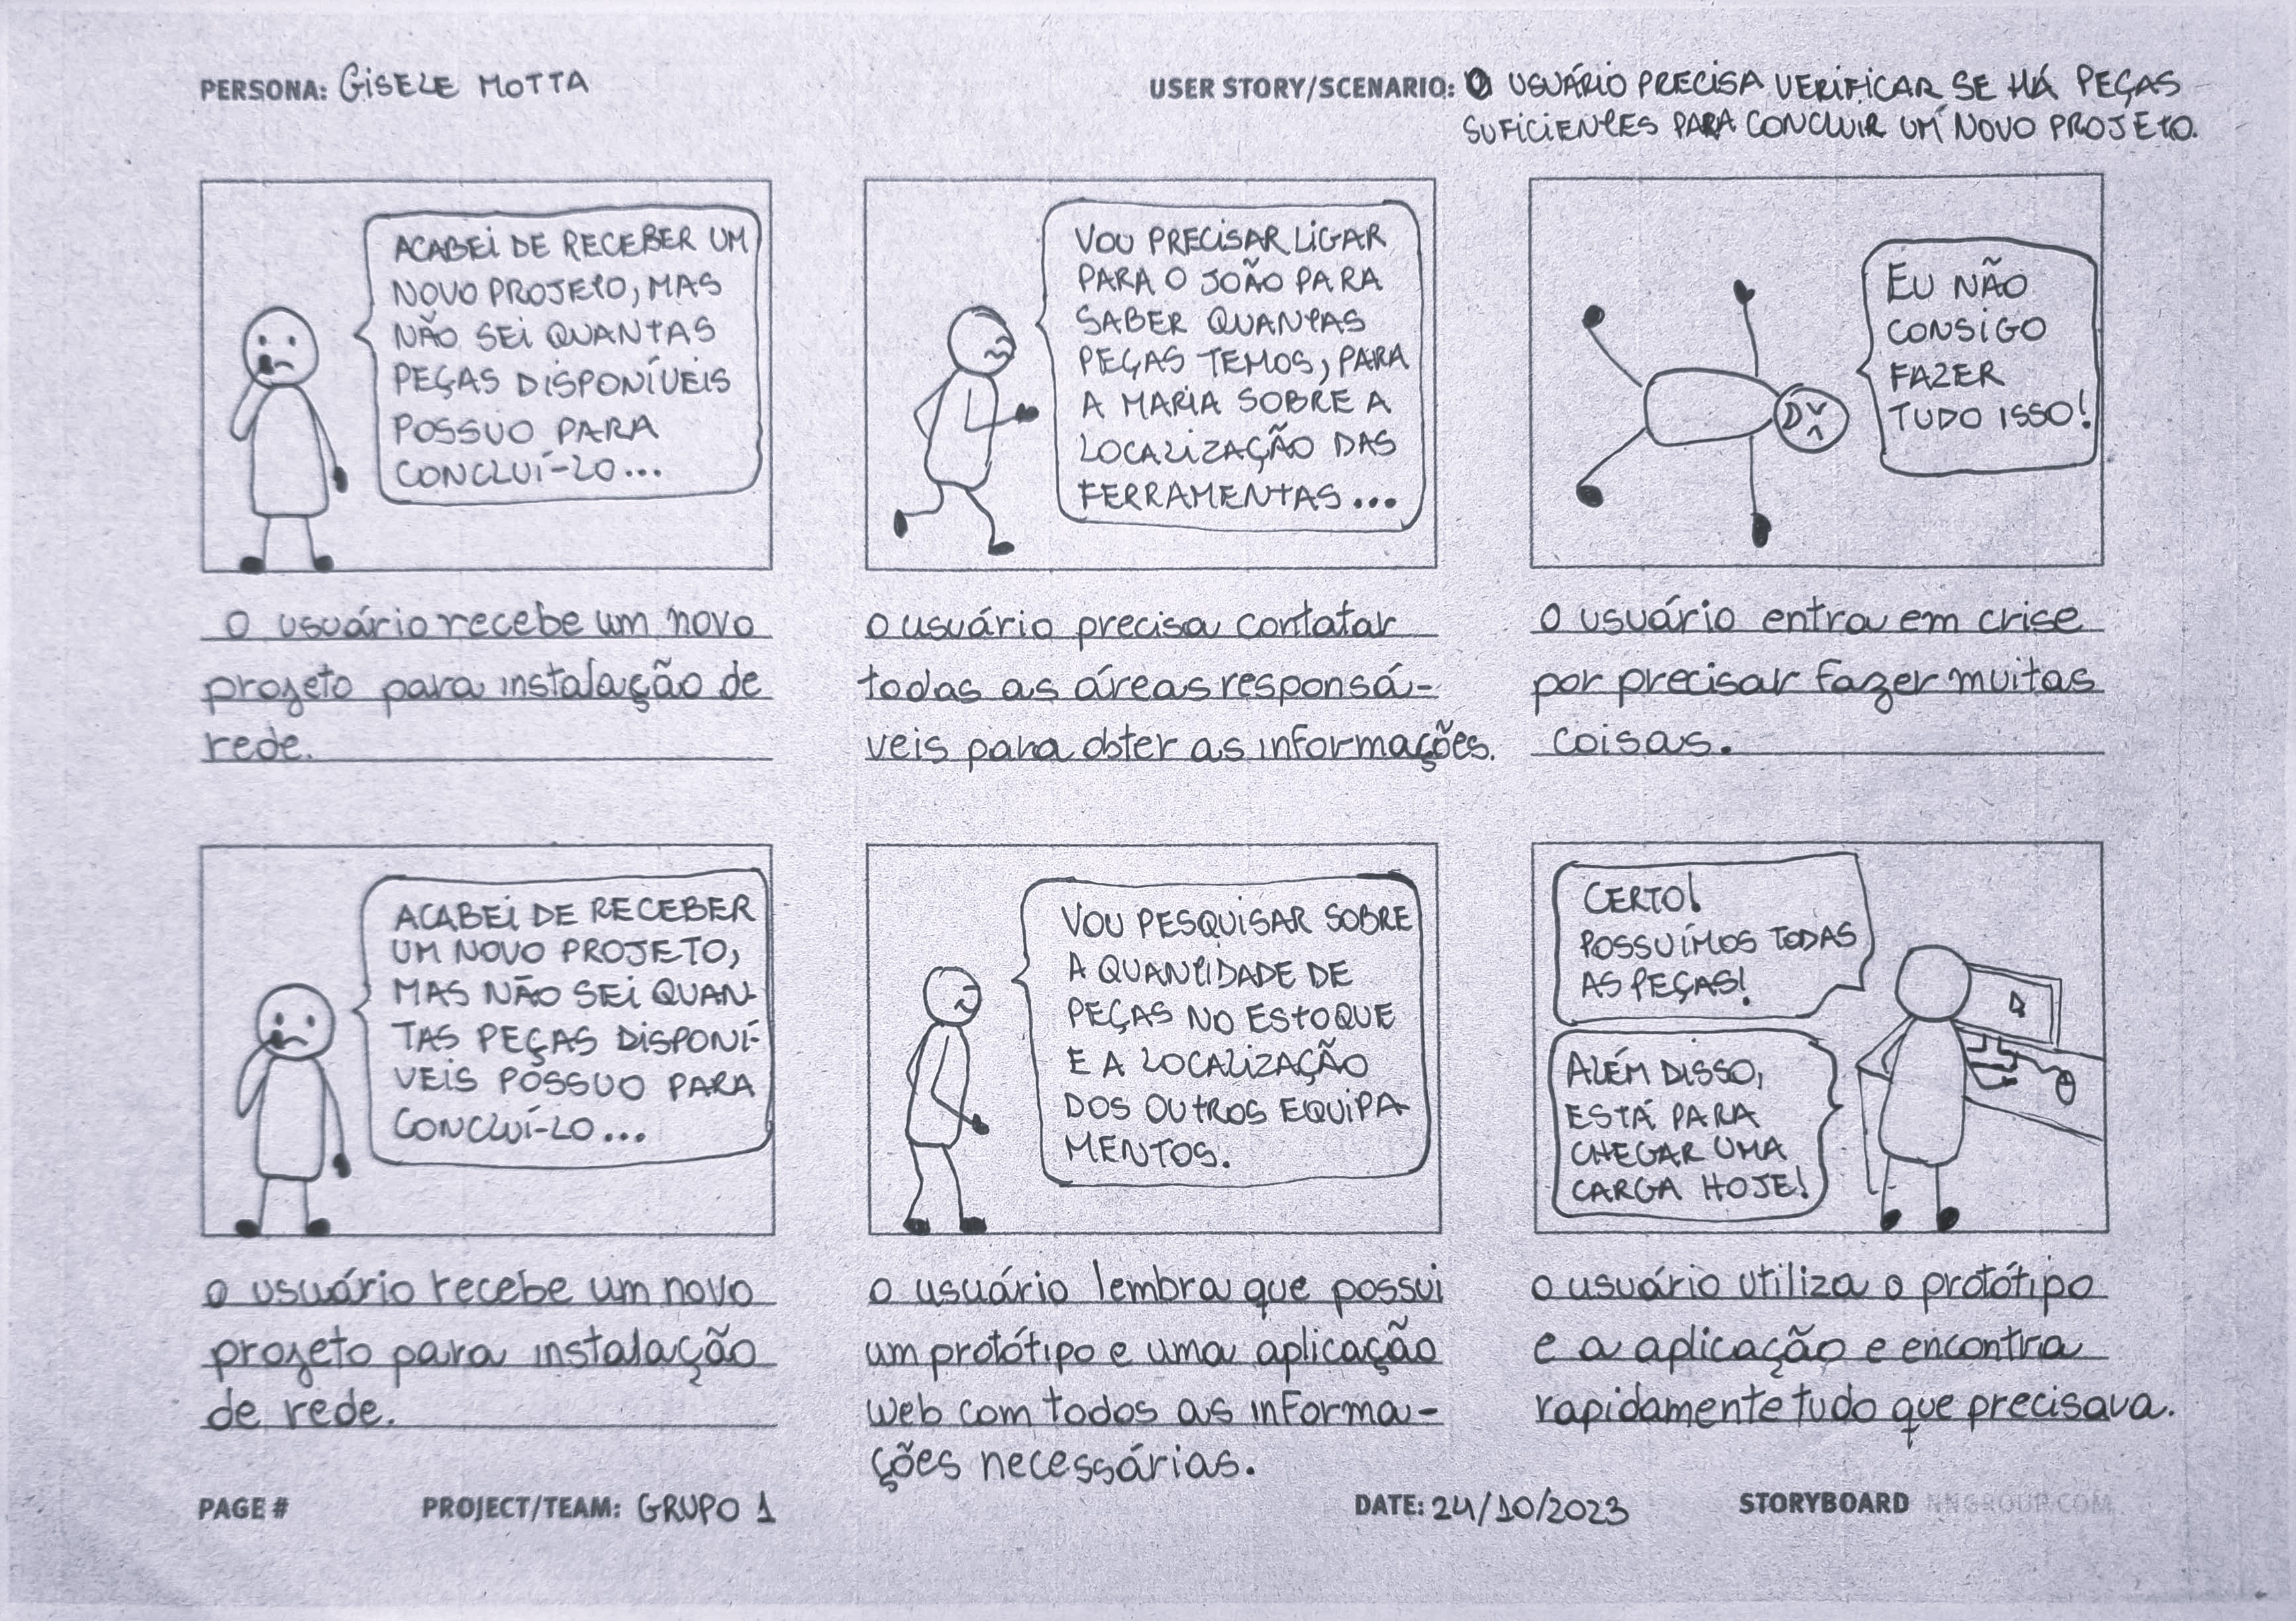 PERSONA: GISELE MOTTA
USER STORY/SCENARIO: O USUÁRIO PRECISA VERIFICAR SE HÁ PEÇAS
SUFICIENTES PARA CONCLUIR UM NOVO PROJETO.
ACABEI DE RECEBER UM
NOVO PROJETO, MAS
NÃO SEI QUANTAS
PEÇAS DISPONÍVEIS
POSSUO PARA
CONCLUÍ-LO...
O usuário recebe um novo
projeto para instalação de
rede.
VOU PRECISAR LIGAR
PARA O JOÃO PARA
SABER QUANTAS
PEÇAS TEMOS, PARA
A MARIA SOBRE A
LOCALIZAÇÃO DAS
FERRAMENTAS...
O usuário precisa contatar
todas as áreas responsá-
veis para obter as informações.
EU NÃO
CONSIGO
FAZER
TUDO ISSO!
O usuário entra em crise
por precisar fazer muitas
coisas.
ACABEI DE RECEBER
UM NOVO PROJETO,
MAS NÃO SEI QUAN-
TAS PEÇAS DISPONÍ-
VEIS POSSUO PARA
CONCLUÍ-LO...
O usuário recebe um novo
projeto para instalação
de rede.
VOU PESQUISAR SOBRE
A QUANTIDADE DE
PEÇAS NO ESTOQUE
E A LOCALIZAÇÃO
DOS OUTROS EQUIPA-
MENTOS.
O usuário lembra que possui
um protótipo e uma aplicação
web com todos as informa-
ções necessárias.
CERTO!
POSSUÍMOS TODAS
AS PEÇAS!
ALÉM DISSO,
ESTÁ PARA
CHEGAR UMA
CARGA HOJE!
O usuário utiliza o protótipo
e a aplicação e encontra
rapidamente tudo que precisava.
PAGE #
PROJECT/TEAM: GRUPO 1
DATE: 24/10/2023
STORYBOARD NNGROUP.COM